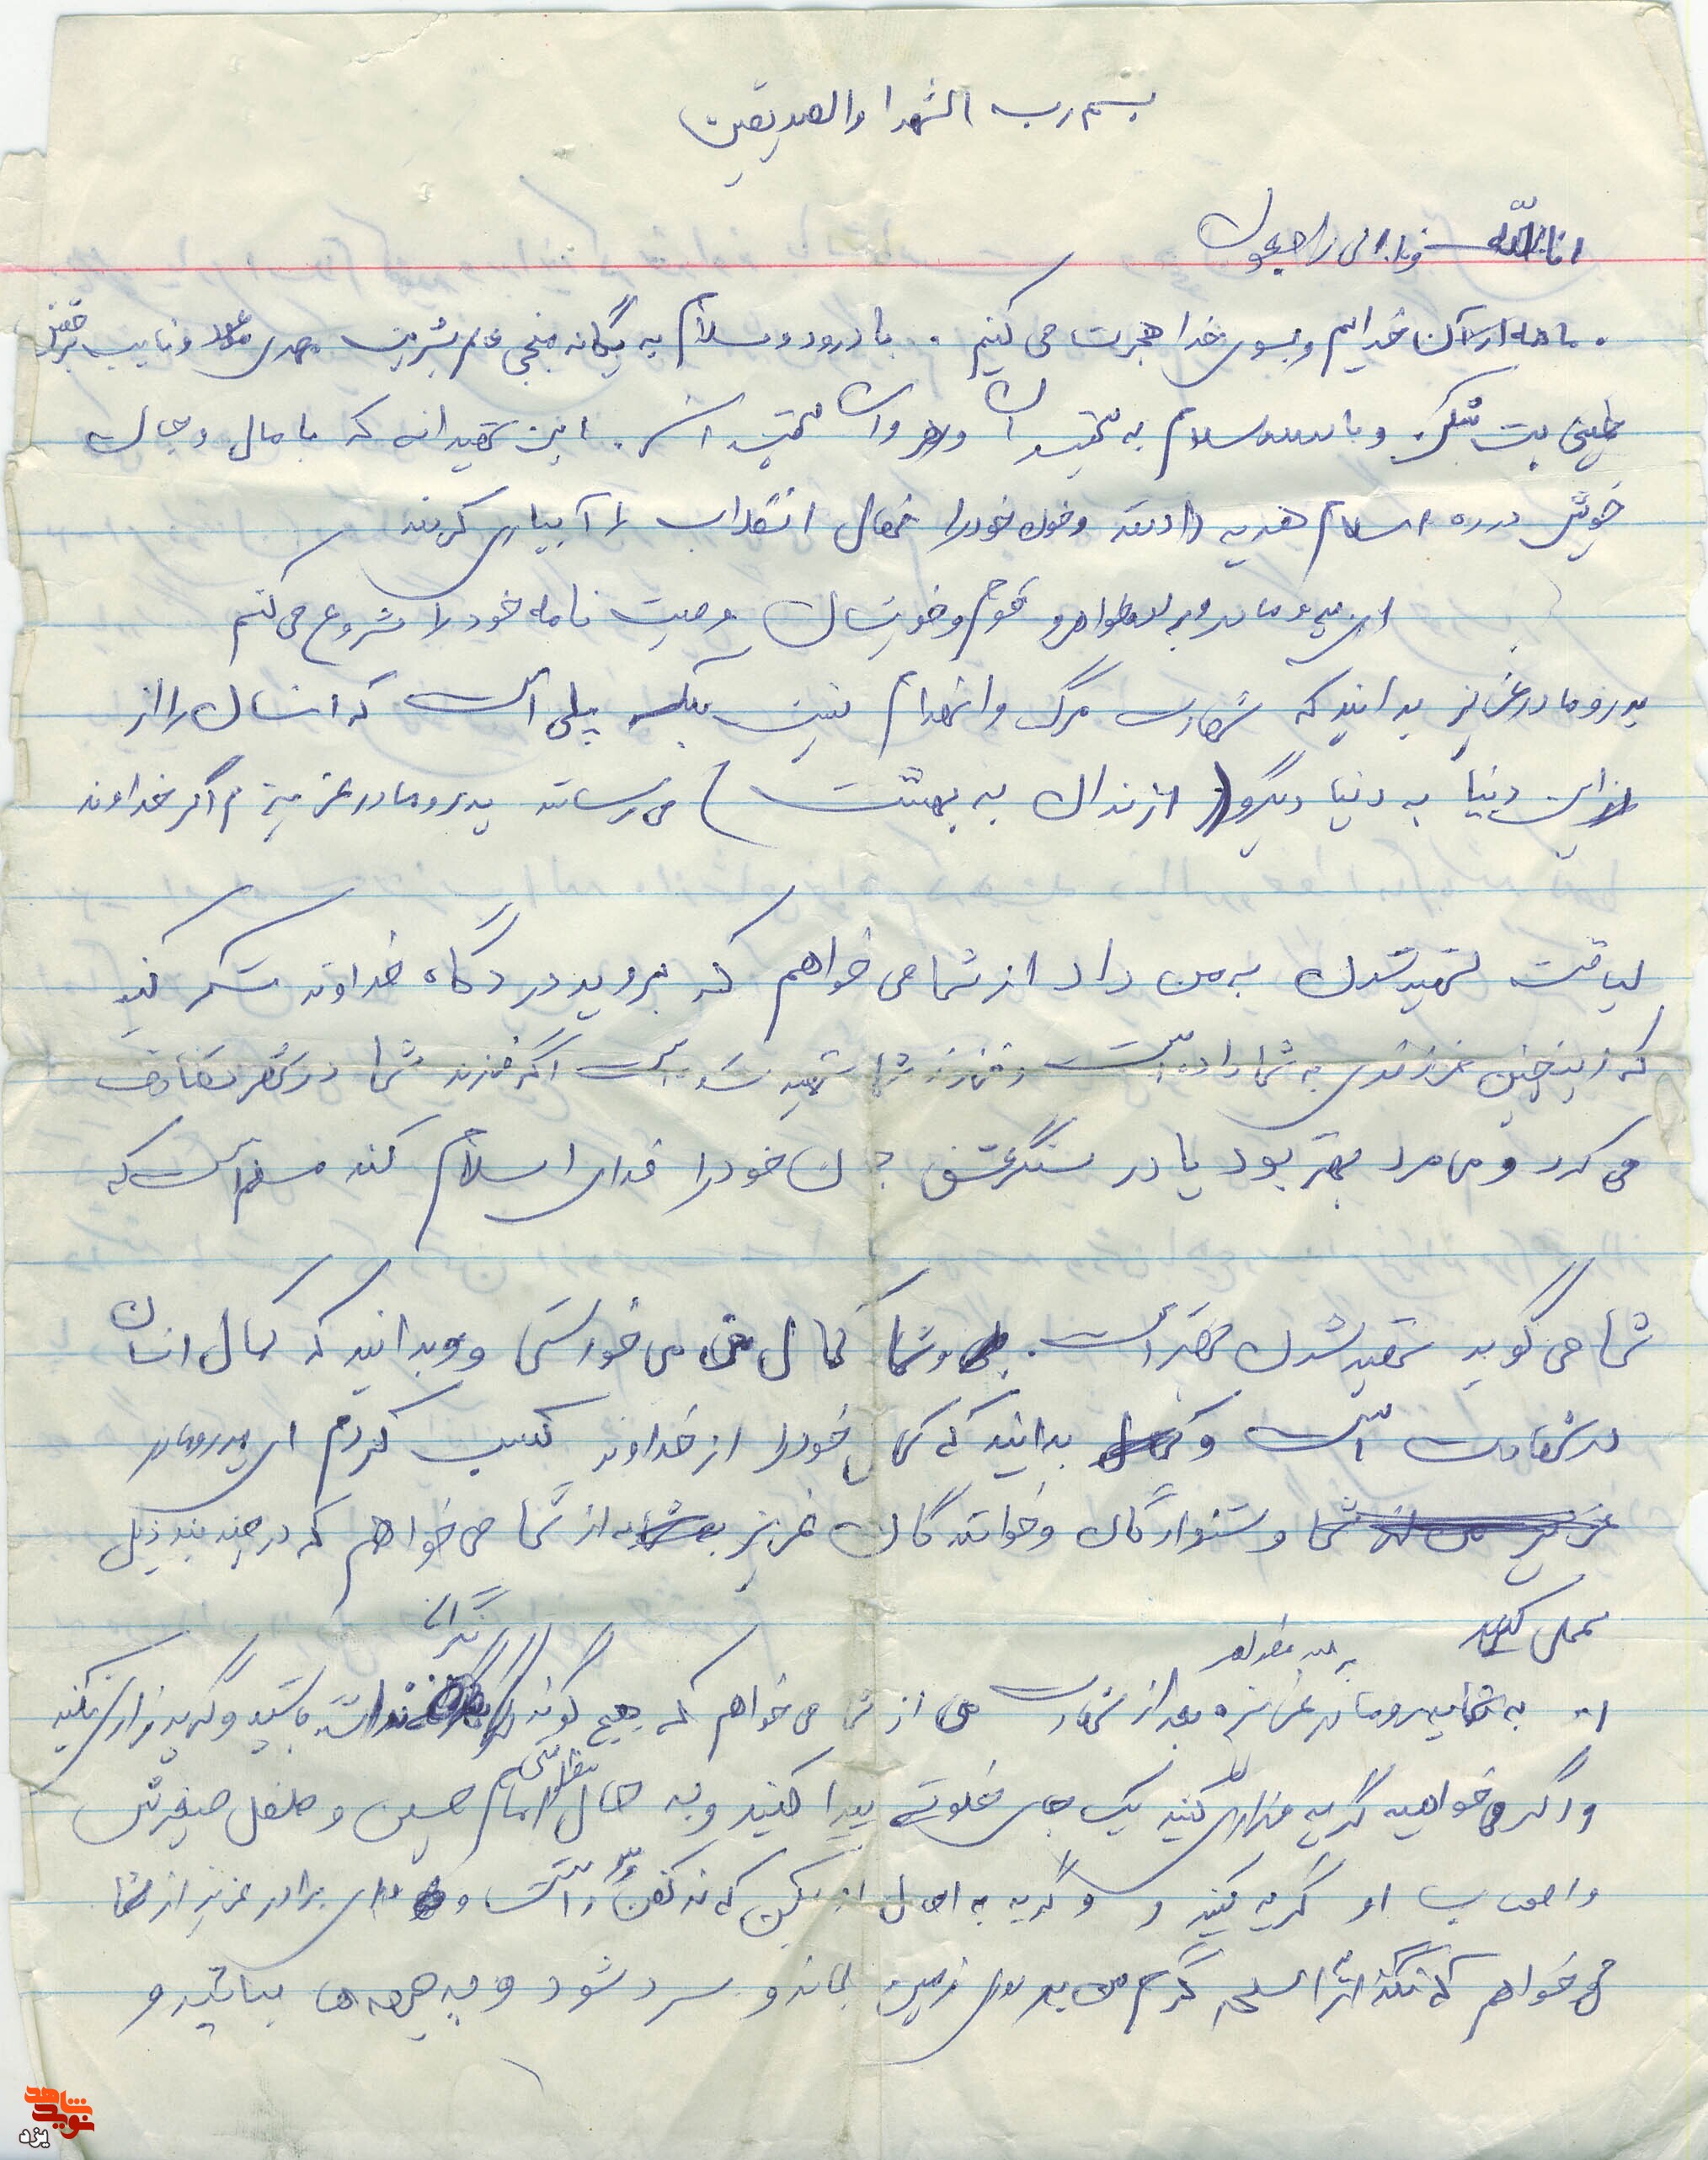 بسم رب الشهدا والصدیقین
انا لله وانا الی راجعون
. ما همه از آن خدایم و بسوی خدا هجرت می کنیم . با درود و سلام به یگانه منجی عالم بشریت مهدی موعود و نایب
خمینی بت شکن . و با سلام به شهیدان و این شهیدانی که با مال و جان
خویش در ره اسلام هدیه دادند و خون خود را نهال انقلاب را آبیاری کردند
ای پدر و مادر و برادر و خواهر و قوم و خویشان وصیت نامه خود را شروع می کنم
پدر و مادر عزیز بدانید که شهادت مرگ و انهدام نیست بلکه پلی است که انسان را از
این دنیا به دنیا دیگر ( از زندان به بهشت ) می رساند پدر و مادر عزیزم اگر خداوند
لیاقت شهید شدن به من داد از شما می خواهم که بروید در دگاه خداوند شکر کنید
که این چنین فرزندی به شما داده است و فرزند شما شهید شده است اگر فرزند شما در تصادف
می کرد و می مرد بهتر بود یا در سنگر عشق جان خود را فدای اسلام کند مسلم است که
شما می گوید شهید شدن بهتر است . و شما کمال من می خواستی و بدانید که کمال انسان
در شهادت است و بدانید که کمال خود را از خداوند کسب کردم ای پدر و مادر
عزیز شما و شنوادگان و خوانندگان عزیز از شما می خواهم که در چند بند ذیل
عمل کنید
۱- به شما پدر و مادر عزیزم بعد از شهادت من از شما می خواهم که هیچ گونه نگرانی نداشته باشید و گریه زاری نکنید
و اگر می خواهید گریه زاری کنید یک جای خلوتی پیدا کنید و به حال مظلومی امام حسین و طفل صغیرش
و اصحاب او گریه کنید و گریه به حال این بکنید که نه کفن داشت و ای برادر عزیز از شما
می خواهم که نگذارید اسلحه گرم من بر روی زمین بماند و سرد شود و به جبهه ها بیائید و
شاهد
نوید
یزد